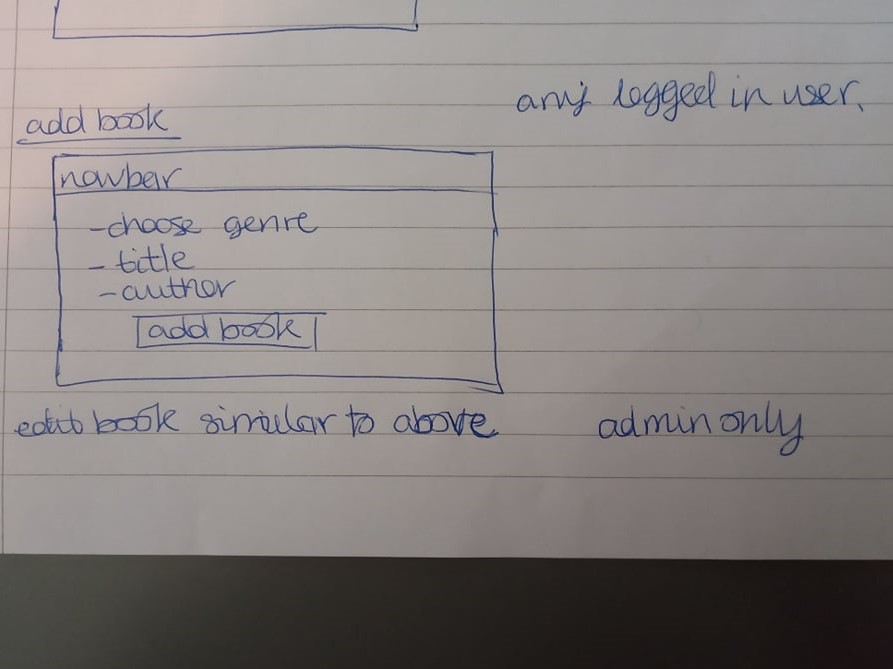 any logged in user.
add book
navbar
-choose genre
- title
-author
add book
edit book similar to above
admin only